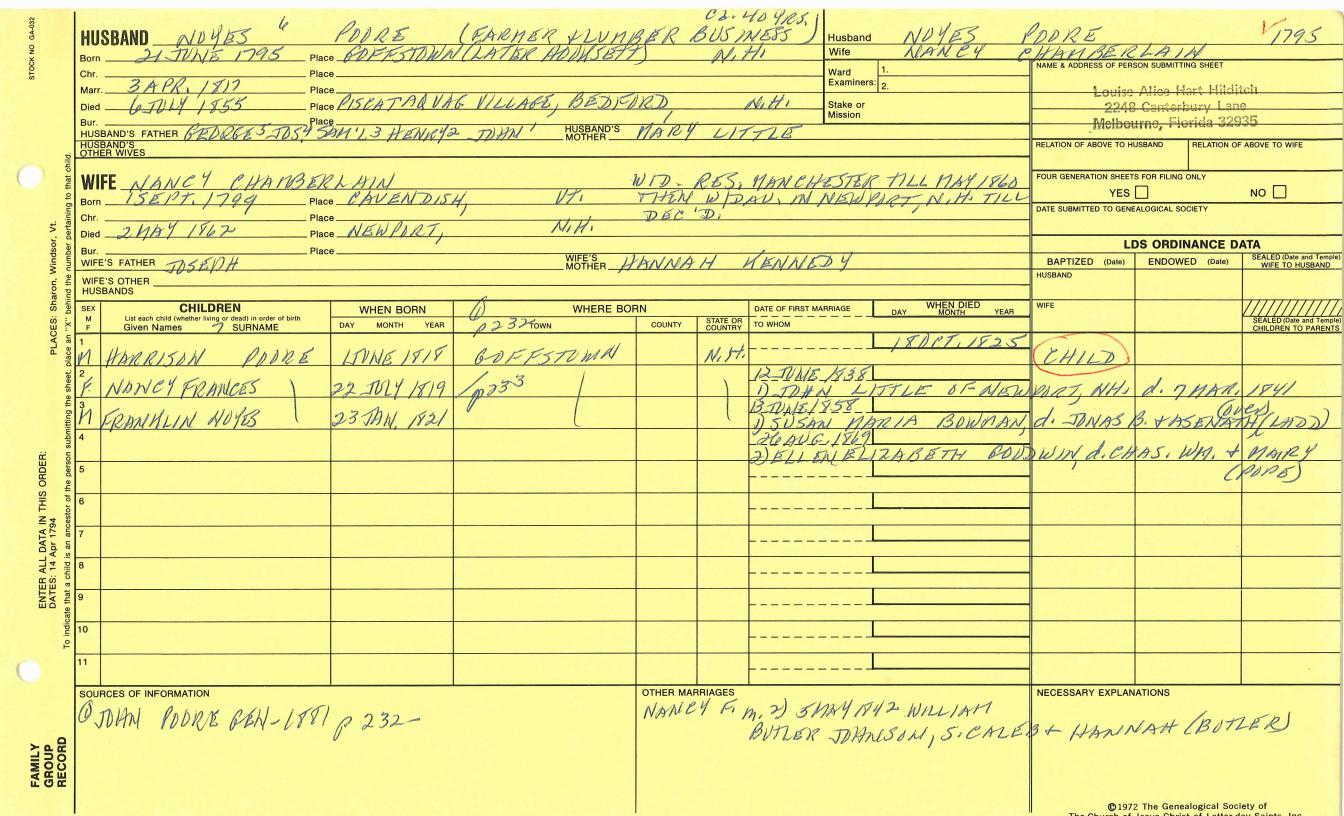 STOCK NO. GA-032
C2. 40 YRS.)
HUSBAND NOYES 6 POORE (FARMER & LUMBER BUSINESS)
Born 21 JUNE 1795 Place GOFFSTOWN (LATER HOOKSETT) N.H.
Chr. Place
Marr. 3 APR. 1817 Place
Died 6 JULY 1855 Place PISCATAQUAG VILLAGE, BEDFORD, N.H.
Bur. Place
HUSBAND'S FATHER GEORGE5 JOS4 SAM'L3 HENRY2 JOHN1 HUSBAND'S MOTHER MARY LITTLE
HUSBAND'S OTHER WIVES
Husband NOYES POORE √1795
Wife NANCY CHAMBERLAIN
Ward Examiners: 1.
2.
Stake or Mission
NAME & ADDRESS OF PERSON SUBMITTING SHEET
Louise Alice Hart Hilditch
2248 Canterbury Lane
Melbourne, Florida 32935
RELATION OF ABOVE TO HUSBAND RELATION OF ABOVE TO WIFE
FOUR GENERATION SHEETS FOR FILING ONLY
YES NO
DATE SUBMITTED TO GENEALOGICAL SOCIETY
WIFE NANCY CHAMBERLAIN WID- RES, MANCHESTER TILL MAY 1860
Born 1 SEPT. 1799 Place CAVENDISH, VT. THEN W/DAU. IN NEWPORT, N.H. TILL
Chr. Place DEC'D.
Died 2 MAY 1862 Place NEWPORT, N.H.
Bur. Place
WIFE'S FATHER JOSEPH WIFE'S MOTHER HANNAH KENNEDY
WIFE'S OTHER HUSBANDS
LDS ORDINANCE DATA
BAPTIZED (Date) ENDOWED (Date) SEALED (Date and Temple) WIFE TO HUSBAND
HUSBAND
WIFE
SEALED (Date and Temple) CHILDREN TO PARENTS
SEX M F
CHILDREN
List each child (whether living or dead) in order of birth
Given Names SURNAME
WHEN BORN
DAY MONTH YEAR
① p 232
WHERE BORN
TOWN COUNTY STATE OR COUNTRY
DATE OF FIRST MARRIAGE
TO WHOM
WHEN DIED
DAY MONTH YEAR
1 M HARRISON POORE 1 JUNE 1818 GOFFSTOWN N.H. 18 OCT. 1825 CHILD
12 JUNE 1838
2 F NANCY FRANCES 22 JULY 1819 p233 1) JOHN LITTLE OF NEWPORT, NH. d. 7 MAR. 1841
(over)
13 JUNE 1858
3 M FRANKLIN NOYES 23 JAN. 1821 1) SUSAN MARIA BOWMAN, d. JONAS B. & ASENATH (LADD)
4 26 AUG. 1869
2) ELLEN ELIZABETH GOODWIN, d. CHAS. WM. & MARY
5 (POPE)
6
7
8
9
10
11
SOURCES OF INFORMATION
① JOHN POORE GEN-1881 p 232-
OTHER MARRIAGES
NANCY F. m. 2) 5 MAY 1842 WILLIAM
BUTLER JOHNSON, S. CALEB & HANNAH (BUTLER)
NECESSARY EXPLANATIONS
©1972 The Genealogical Society of
The Church of Jesus Christ of Latter-day Saints, Inc.
ENTER ALL DATA IN THIS ORDER:
DATES: 14 Apr 1794
PLACES: Sharon, Windsor, Vt.
To indicate that a child is an ancestor of the person submitting the sheet, place an "X" behind the number pertaining to that child.
FAMILY
GROUP
RECORD